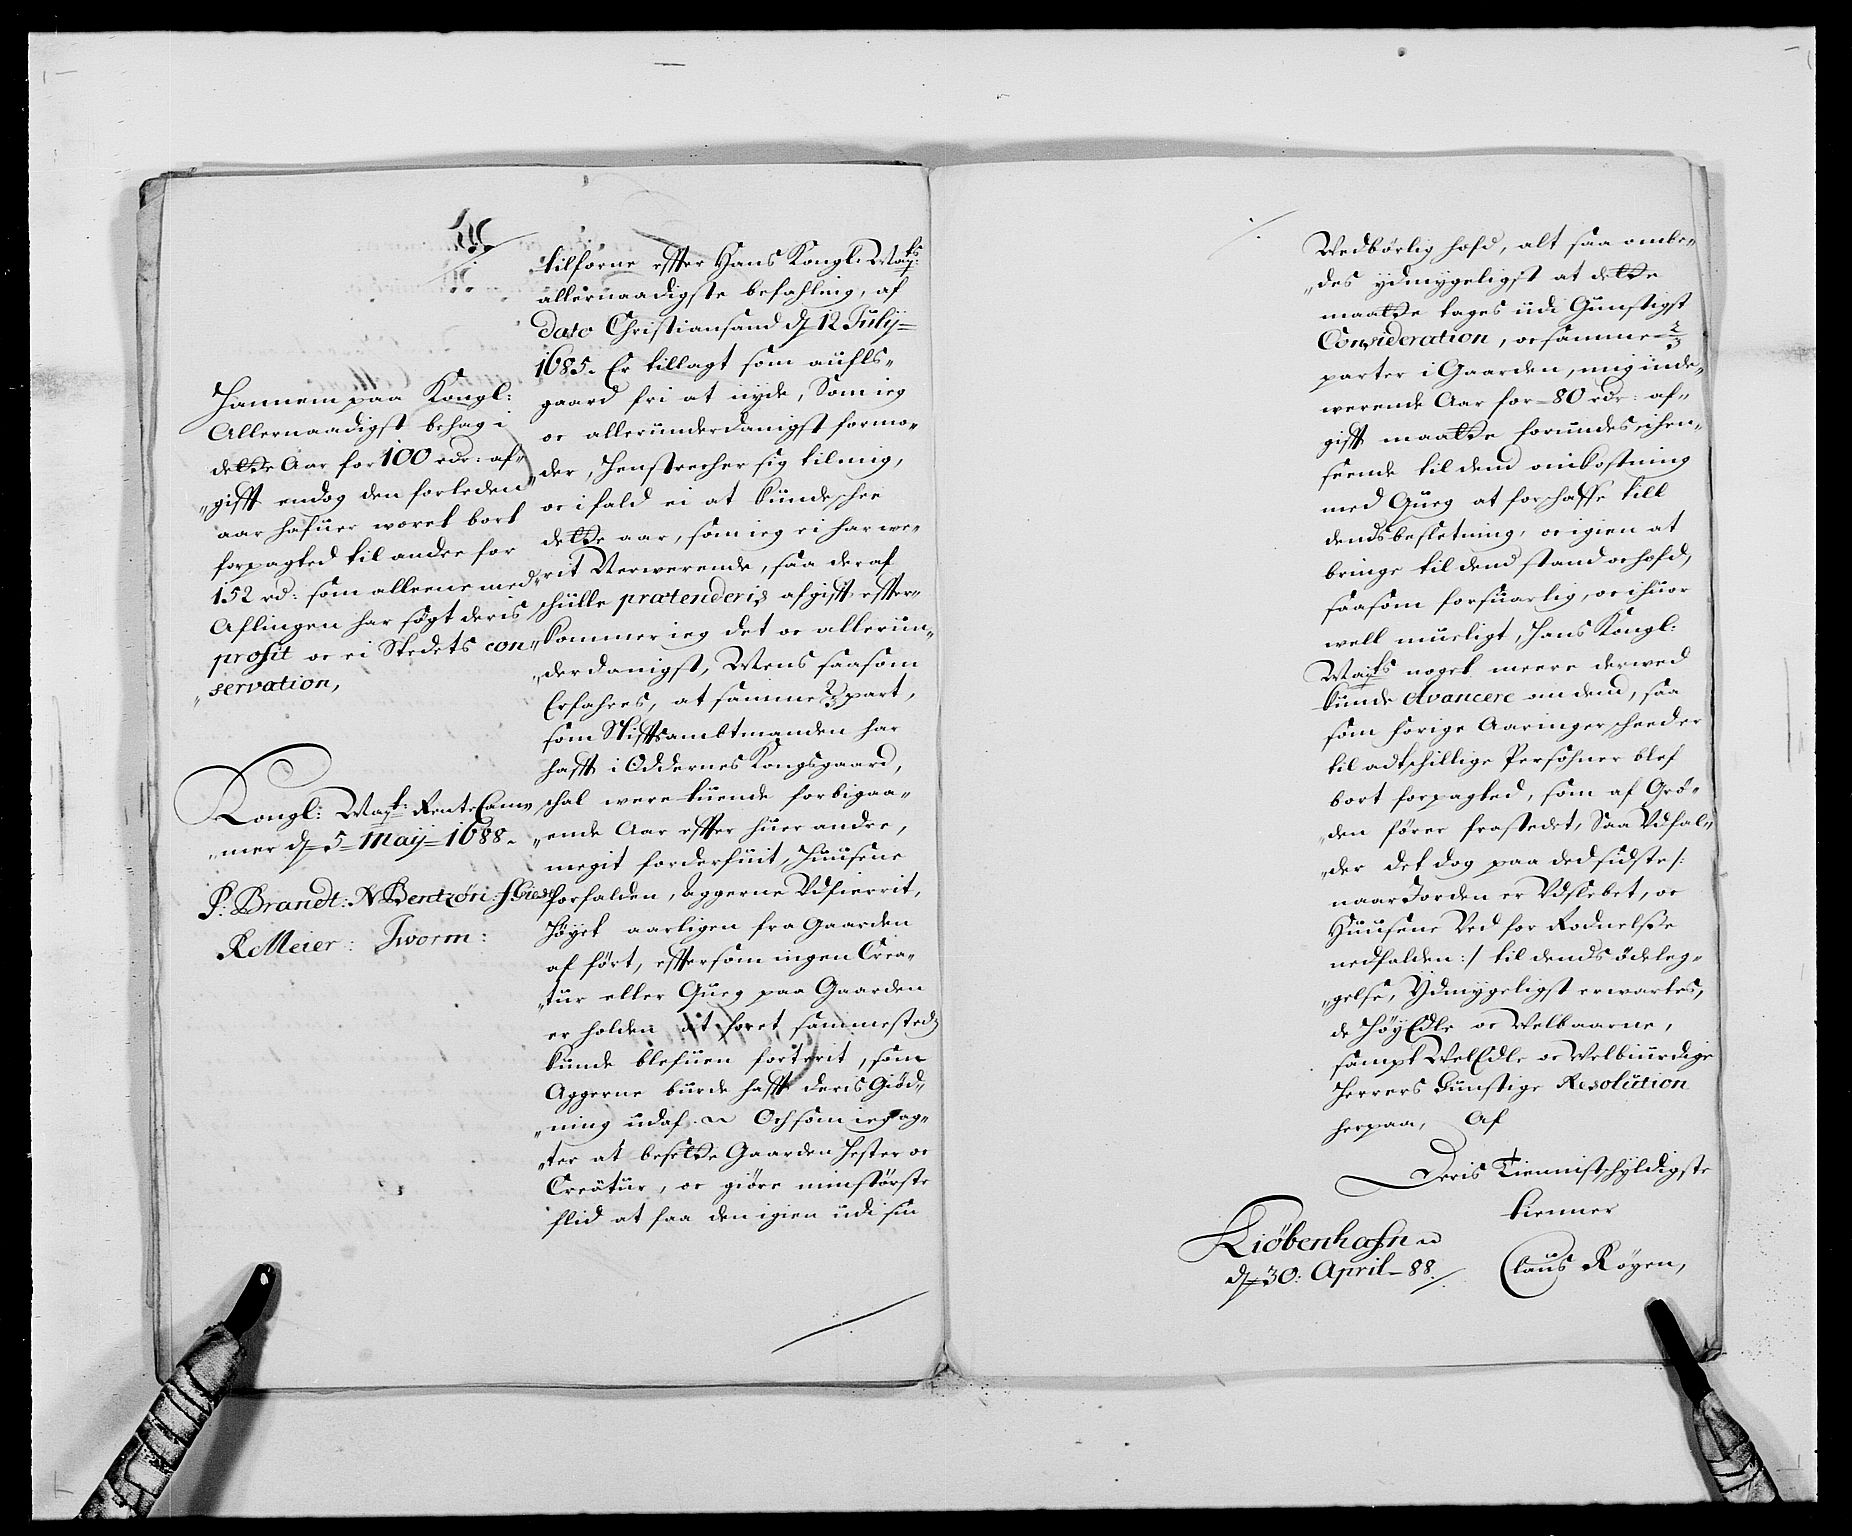 Hannem paa Kongl:
Allernaadigst behag i
dette Aar for 100 rdr: af„
„gifft endog den forleden
aar hafuer woret bort
forpagted til andre for
152 rd: som alleene med
Aflingen har søgt deris
profit oc ei Stedets con„
„servation,
Kongl: Mayt: Rente Cam„
„mer d 5 Maij 1688.
P: Brandt: N Bentzön:
R Meier: J worm:
tilforne effter Hans Kongl: Mayts:
allernaadigste befahling, af
Dato Christiansand d 12 Julij
1685. Er tillagt som aufls„
gaard fri at nyde, Som ieg
oc allerunderdanigst formo„
der, Henstrecher sig til mig,
oc ifald ei at kunde schee
dette aar, som ieg ei har we„
„rit Nerwerende, saa deraf
schulle prætenderis afgifft, effter„
„kommer ieg det oc allerun„
„derdanigst, Mens saasom
Erfahres, at samme 2/3 part,
som Stifftsambtmanden har
hafft i Oddernes Kongsgaard,
schal were tuende forbigaa„
„ende Aar effter huer andre,
megit forderfuit, Huusene
forfalden, Aggerne Vdfierrit,
Høyet aarligen fra Gaarden
af ført, efftersom ingen Crea„
„tur eller Queg paa Gaarden
er holden at foret sammesteds
kunde blefuen forterit, som
Aggerne burde hafft deris Giød„
„ning udaf. Och som ieg ag„
„ter at besette Gaarden Hester oc
Creatur, oc giøre min største
flid at faa den igien udi sin
Wedbørlig hæfd, alt saa ombe„
„des ydmygeligst at dette
maatte tages udi Gunstigst
Consideration, oc samme 2/3
parter i Gaarden, mig inde„
werende Aar for 80 rdr: af„
gifft maatte forundes, ihen„
seende til dend omkostning
med Queg at forschaffe till
dends besletning, oc igien at
bringe til dend stand oc hæfd,
saasom forsuarlig, oc ihuor
well mueligt, Hans Kongl:
Mayts noget meere derwed
kunde Avancere om dend, saa
som forige Aaringer scheeder
til adtschillige Persohner blef
bort forpagted, som af Grö„
„den fører frastedet, Saa Vdfal„
„der det dog paa ded sidste /:
naar Jorden er Vdslebet, oc
Huusene Ved for Rodnelsse
nedfalden :/ til dends ödeleg„
„gelse, Ydmygeligst erwartes,
de HøyEdle oc Welbaarne,
sampt WelEdle oc Welbiurdige
Herrers Gunstige Resolution
herpaa, Af
Deris Tiennistschyldigste
tienner
Kiöbenhafn
d 30: April 88. Claus Röyen,